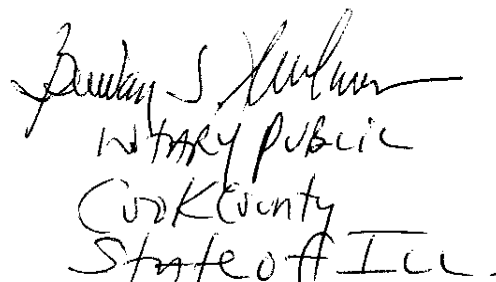 S.
NOTARY PUBLIC
Cook County
State of Ill.